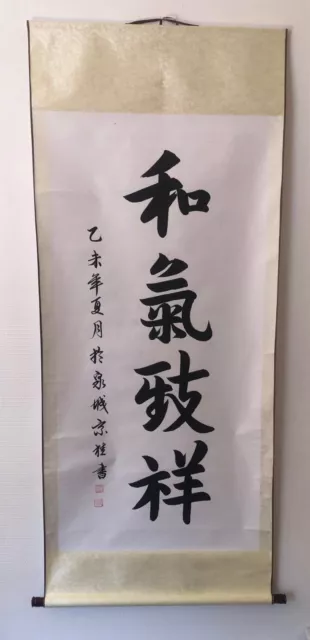 和氣致祥
乙未年夏月於泉城京桂書